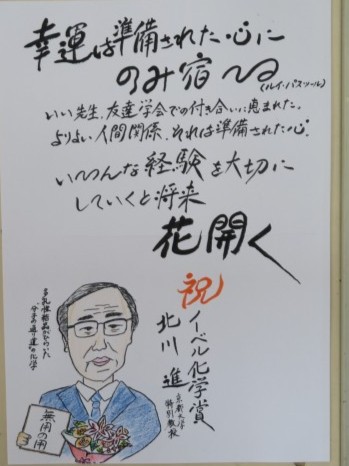 幸運は準備された心に
のみ宿る
(ルイ・パスツール)
いい先生、友達学会での付き合いに恵まれた。
よりよい人間関係、それは準備された心。
いろんな経験を大切に
していくと将来
花開く
祝
ノーベル化学賞
北川 進
京都大学
特別教授
多孔性結晶がひらいた
"分子の通り道"の化学
無用の用